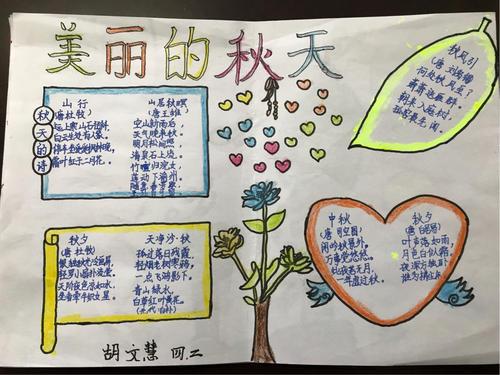 美丽的秋天
秋天的诗
山行
(唐 杜牧)
远上寒山石径斜,
白云生处有人家。
停车坐爱枫林晚,
霜叶红于二月花。
山居秋暝
(唐 王维)
空山新雨后,
天气晚来秋。
明月松间照,
清泉石上流。
竹喧归浣女,
莲动下渔舟。
秋风引
(唐 刘禹锡)
何处秋风至?
萧萧送雁群。
朝来入庭树,
孤客最先闻。
秋夕
(唐 杜牧)
银烛秋光冷画屏,
轻罗小扇扑流萤。
天阶夜色凉如水,
坐看牵牛织女星。
天净沙·秋
孤村落日残霞,
轻烟老树寒鸦,
一点飞鸿影下。
青山绿水,
白草红叶黄花。
(元代 白朴)
中秋
(唐 司空图)
闲吟秋景外,
万事觉悠悠。
此夜若无月,
一年虚过秋。
秋夕
(唐 白居易)
叶声落如雨,
月色白似霜。
夜深方独卧,
谁为拂尘床。
胡文慧 四.二